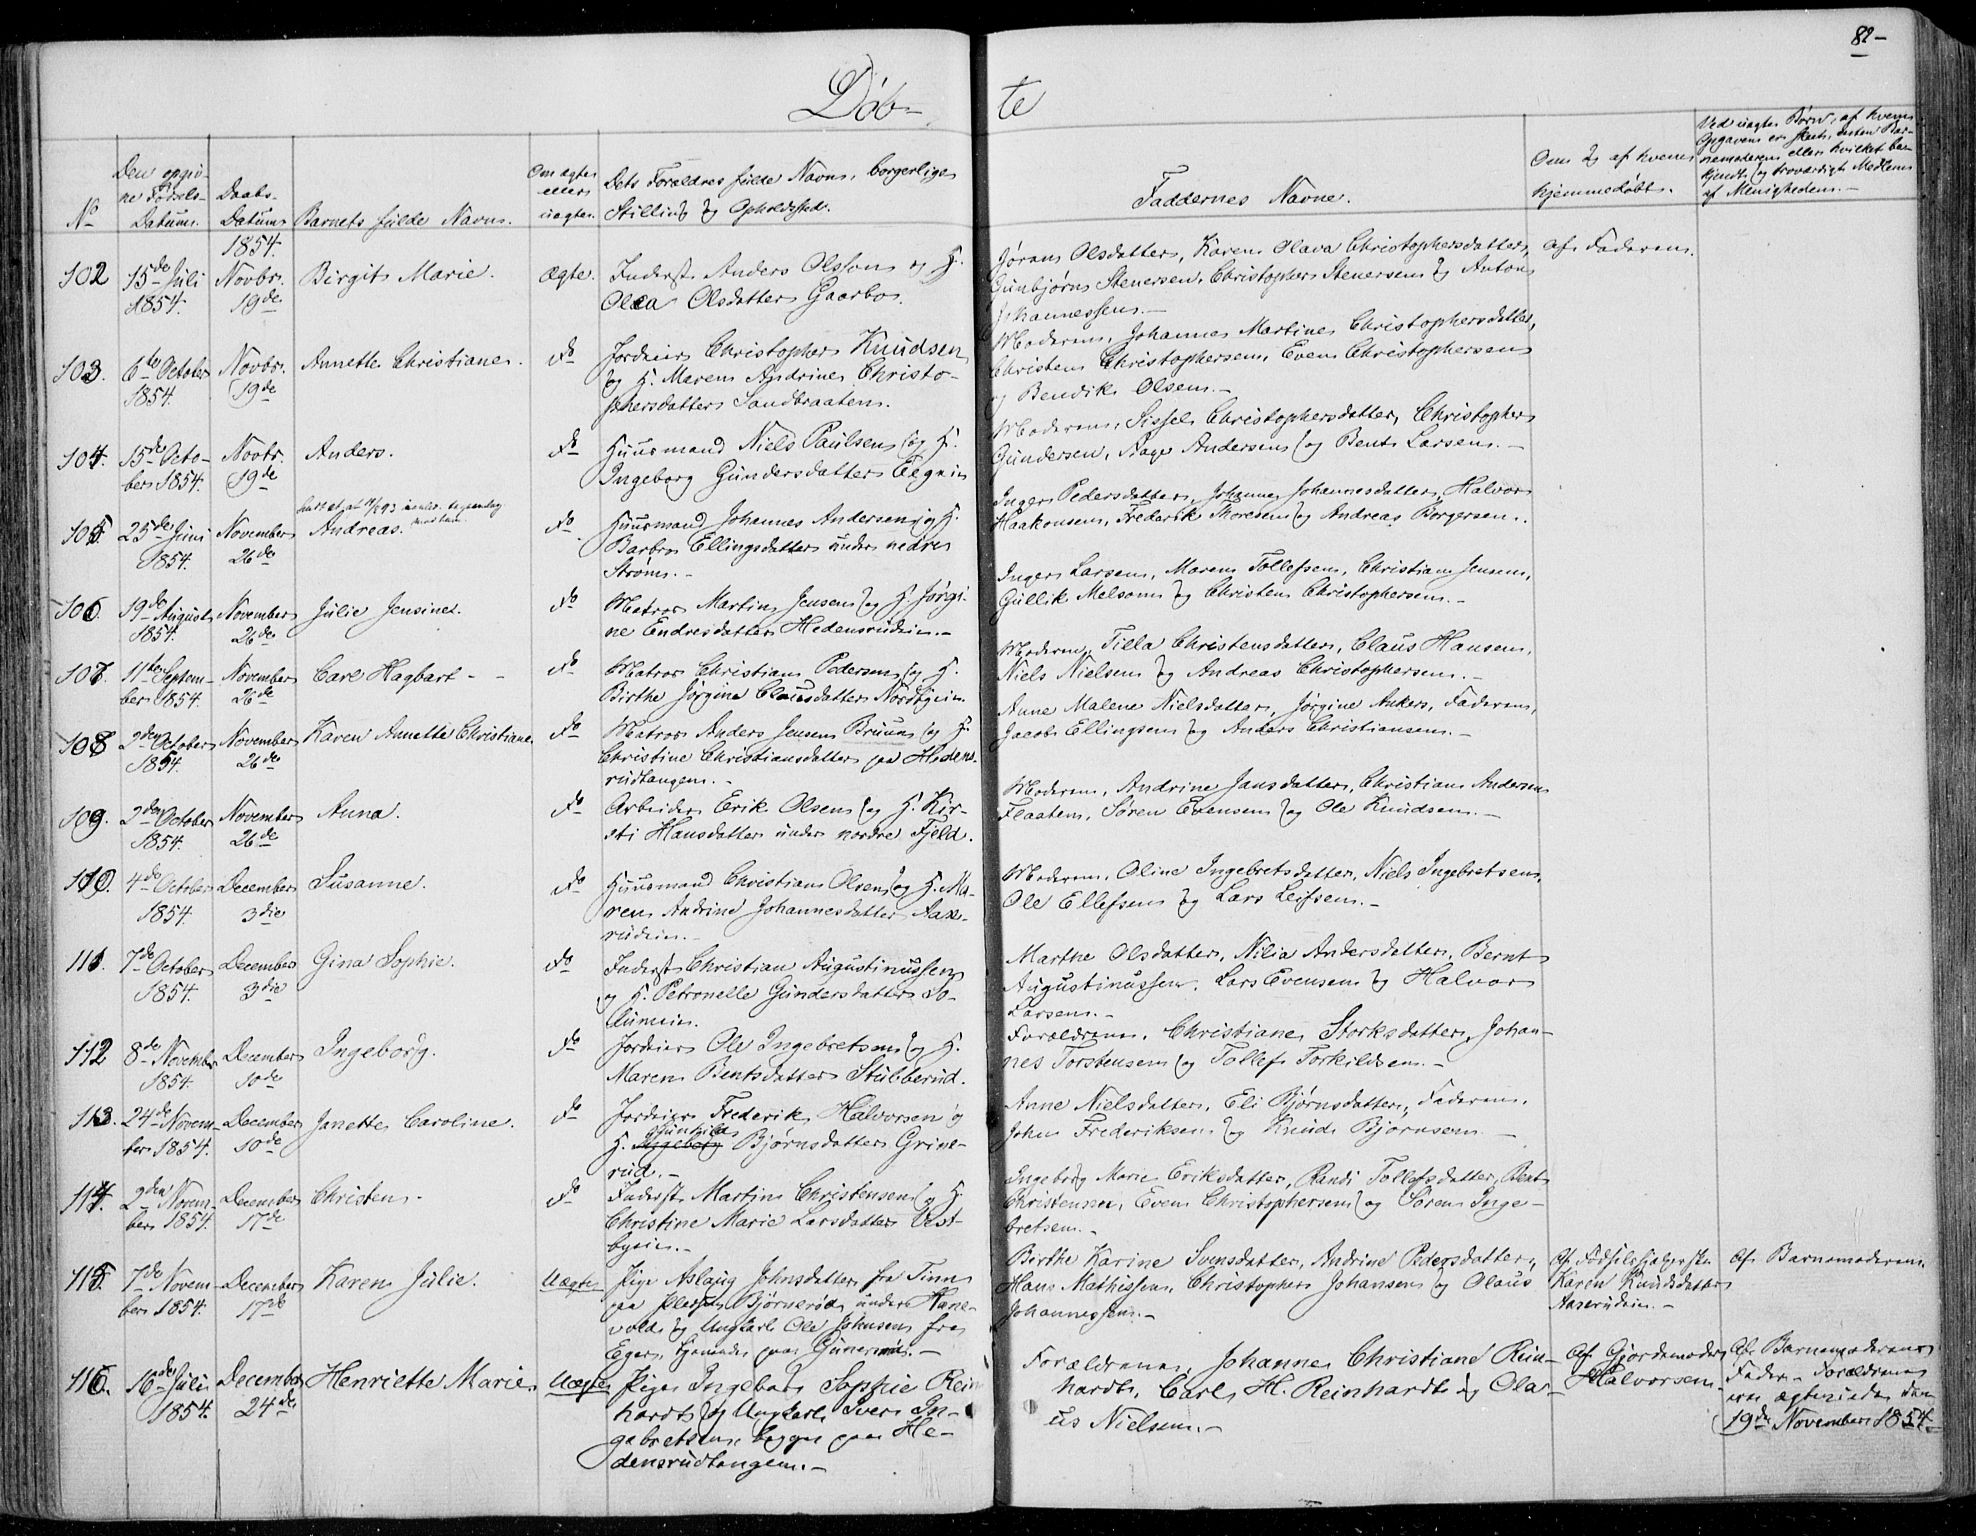 82-
Døb-
te
No
Den opgiv-
ne Fødsels-
Datum.
Daabs-
Datum.
Barnets fulde Navn.
Om ægte
eller
uægte.
Dets Forældres fulde Navn, borgerlige
Stilling og Opholdssted.
Faddernes Navne.
Om & af hvem
hjemmedøbt.
Ved uægte Børn, af hvem
Opgaven er skeet, enten Bar-
nemoderen eller hvilket be-
kjendt og troværdigt Medlem
af Menigheden.-
102
15de Juli
1854.
1854.
Novbr.
19de
Birgit Marie.
Ægte.
Inderst Anders Olsson og H.
Olea Olsdatter Gaarbo.
Jøran Olsdatter, Karen Olava Christophersdatter,
Gunbjørn Stenersen, Christopher Stenersen og Anton
Johannessen.-
af Faderen.
103.
6te October
1854.
Novbr.
19de
Annette Christiane.
do
Jordeier Christopher Knudsen
og H. Maren Andrine Christo-
phersdatter Sandbraaten.
Moderen, Johanne Martine Christophersdatter,
Christen Christophersen, Even Christophersen
og Bendik Olsen.-
104.
15de Octo-
ber 1854.
Novbr.
19de
Anders.
do
Huusmand Niels Paulsen og H.
Ingeborg Gundersdatter Eegeien
Moderen, Sissel Christophersdatter, Christopher
Gundersen, Aage Andersen og Bent Larsen.-
105.
25de Juni
1854.
November
26de
Andreas.
do
Huusmand Johannes Andersen og H.
Barbro Ellingsdatter under nedre
Strøm.-
Inger Pedersdatter, Johanne Johannesdatter, Halvor
Haakonsen, Frederik Thoresen og Andreas Borgersen.
106.
19de August
1854.
November
26de
Julie Jensine.
do
Matros Martin Jensen og H. Jørgi-
ne Endresdatter Hedensrudeie.-
Inger Larsen, Maren Tollefsen, Christian Jensen,
Gullik Melsom og Christen Christophersen.-
107.
11te Septem-
ber 1854.
November
26de
Carl Hagbart - -
do
Matros Christian Pedersen og H.
Birthe Jørgine Clausdatter Nordbyeie.
Moderen, Tilla Christensdatter, Claus Hansen,
Niels Nielsen og Andreas Christophersen.-
108
2den October
1854.
November
26de
Karen Annette Christiane.
do
Matros Anders Jensen Bruun og H.
Christine Christiansdatter paa Hedens-
rudtangen.-
Anne Malene Nielsdatter, Jørgine Anker, Faderen,
Jacob Ellingsen og Anders Christiansen.-
109.
2den October
1854.
November
26de
Anna.
do
Arbeider Erik Olsen og H. Kir-
sti Hansdatter under nordre Fjeld.
Moderen, Andrine Jansdatter, Christian Andersen
Flaaten, Søren Evensen og Ole Knudsen.-
110.
4de October
1854.
December
3die
Susanne.
do
Huusmand Christian Olsen og H. Ma-
ren Andrine Johannesdatter Aase-
rudeie.-
Moderen, Oline Ingebretsdatter, Niels Ingebretsen,
Ole Ellefsen og Lars Leifsen.-
111.
7de October
1854.
December
3die
Gina Sophie.
do
Inderst Christian Augustinussen
og H. Petronelle Gundersdatter So-
lumeie.
Marthe Olsdatter, Nilia Andersdatter, Bernt
Augustinussen, Lars Evensen og Halvor
Larsen.-
112
8de November
1854.
December
10de
Ingeborg.
do
Jordeier Ole Ingebretsen og H.
Maren Bentsdatter Stubberud.
Forældrene, Christiane Storksdatter, Johan-
nes Torstensen og Tollef Torkildsen.-
113.
24de Novem-
ber 1854.
December
10de
Janette Caroline.
do
Jordeier Frederik Halvorsen og
Gunhild
H. Ingeborg Bjørnsdatter Grime-
rud.-
Anne Nielsdatter, Eli Bjørnsdatter, Faderen,
John Frederiksen og Knud Bjørnsen.-
114.
2den Novem-
ber 1854.
December
17de
Christen.
do
Inderst Martin Christensen og H.
Christine Marie Larsdatter Vest-
byeie.-
Ingeborg Marie Eriksdatter, Randi Tollefsdatter, Bent
Christensen, Even Christophersen og Søren Inge-
bretsen.-
115.
7de Novem-
ber 1854.
December
17de
Karen Julie.
Uægte
Pige Aslaug Johnsdatter fra Tinn
paa Pladsen Bjørnerød under Hane-
vold og Ungkarl Ole Johnsen fra
Eger, tjenende paa Gunnerud.-
Birthe Karine Svensdatter, Andrine Pedersdatter,
Hans Mathissen, Christopher Johansen og Olaus
Johannessen.-
Af Fødselshjelpersken
Karen Knudsdatter
Aaserudeie.-
Af Barnemoderen.
116.
16de Juli
1854.
December
24de
Henriette Marie
Uægte
Pige Ingeborg Sophie Rein
hardt og Ungkarl Iver In-
gebretsen, begge paa He-
densrudtangen.-
Forældrene, Johanne Christiane Rein-
hardt, Carl H. Reinhardt og Ola-
us Nielsen.-
Af Gjordemoder
Halvorsen.
Af Barnemoderens
Fader.- Forældrene
ere ægteviede den
19de November 1854.